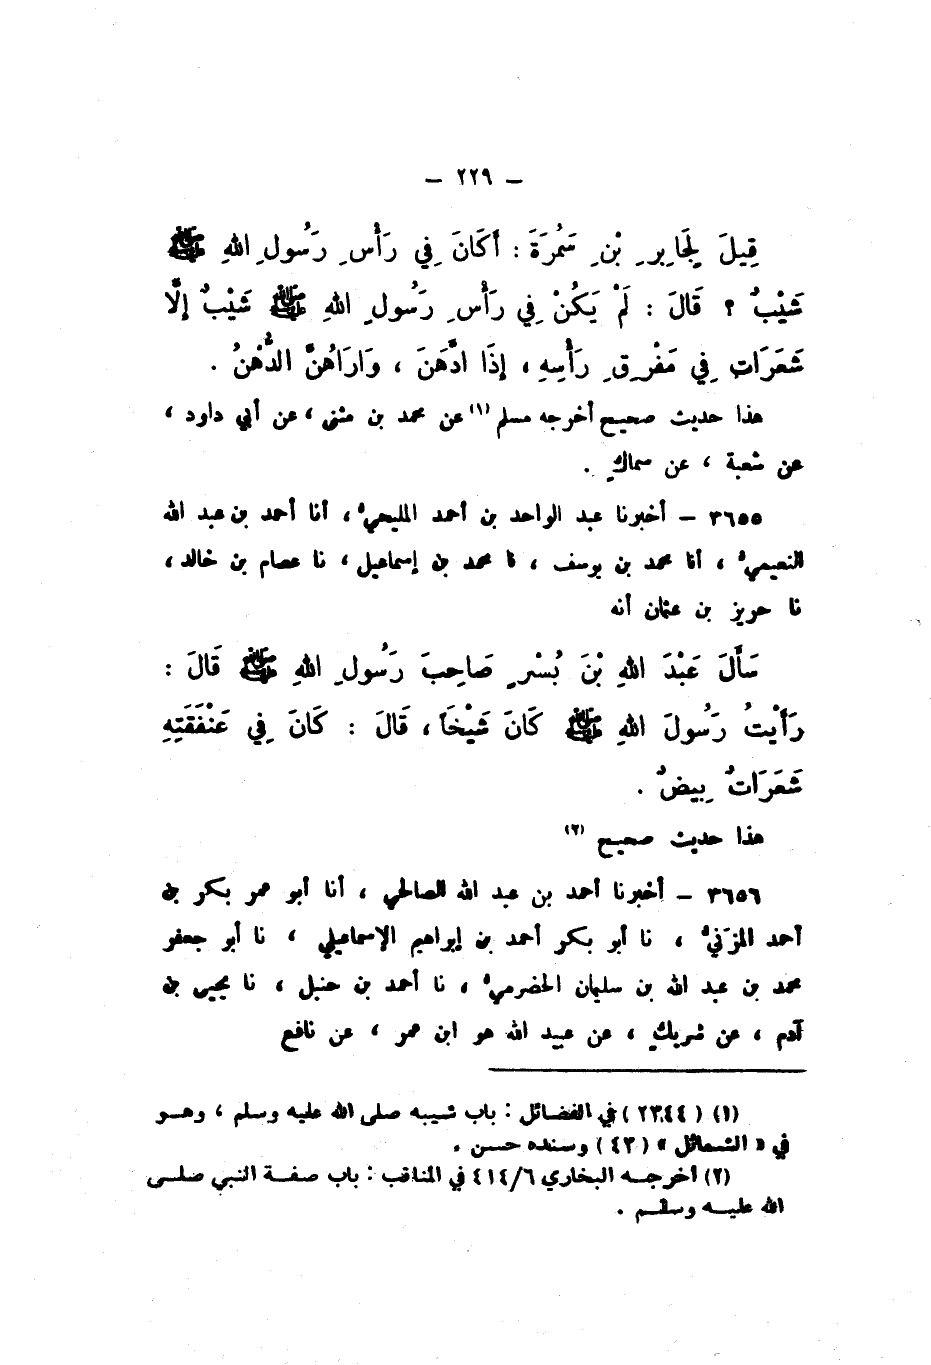 – ٢٢٩ –
قِيلَ لِجَابِرِ بْنِ سَمُرَةَ : أَكَانَ فِي رَأْسِ رَسُولِ اللهِ ﷺ
شَيْبٌ ؟ قَالَ : لَمْ يَكُنْ فِي رَأْسِ رَسُولِ اللهِ ﷺ شَيْبٌ إِلَّا
شَعَرَاتٍ فِي مَفْرِقِ رَأْسِهِ ، إِذَا ادَّهَنَ ، وَارَاهُنَّ الدُّهْنُ .
هذا حديث صحيح أخرجه مسلم (١) عن محمد بن مثنى ، عن أبي داود ،
عن شعبة ، عن سماكٍ .
٣٦٥٥ – أخبرنا عبد الواحد بن أحمد المليحيُّ ، أنا أحمد بن عبد الله
النعيميُّ ، أنا محمد بن يوسف ، نا محمد بن إسماعيل ، نا عصام بن خالد ،
نا حريز بن عثمان أنه
سَأَلَ عَبْدَ اللهِ بْنَ بُسْرٍ صَاحِبَ رَسُولِ اللهِ ﷺ قَالَ :
رَأَيْتُ رَسُولَ اللهِ ﷺ كَانَ شَيْخَاً ، قَالَ : كَانَ فِي عَنْفَقَتِهِ
شَعَرَاتٌ بِيضٌ .
هذا حديث صحيح (٢)
٣٦٥٦ – أخبرنا أحمد بن عبد الله الصالحي ، أنا أبو عمر بكر بن
أحمد المزَنيُّ ، نا أبو بكر أحمد بن إبراهيم الإسماعيلي ، نا أبو جعفر
محمد بن عبد الله بن سليمان الحضرميُّ ، نا أحمد بن حنبل ، نا يحيى بن
آدم ، عن شريكٍ ، عن عبيد الله هو ابن عمر ، عن نافع
(١) ( ٢٣٤٤ ) في الفضائل : باب شيبه صلى الله عليه وسلم ، وهو
في « الشمائل » ( ٤٣ ) وسنده حسن .
(٢) أخرجه البخاري ٤١٤/٦ في المناقب : باب صفة النبي صلى
الله عليه وسلم .